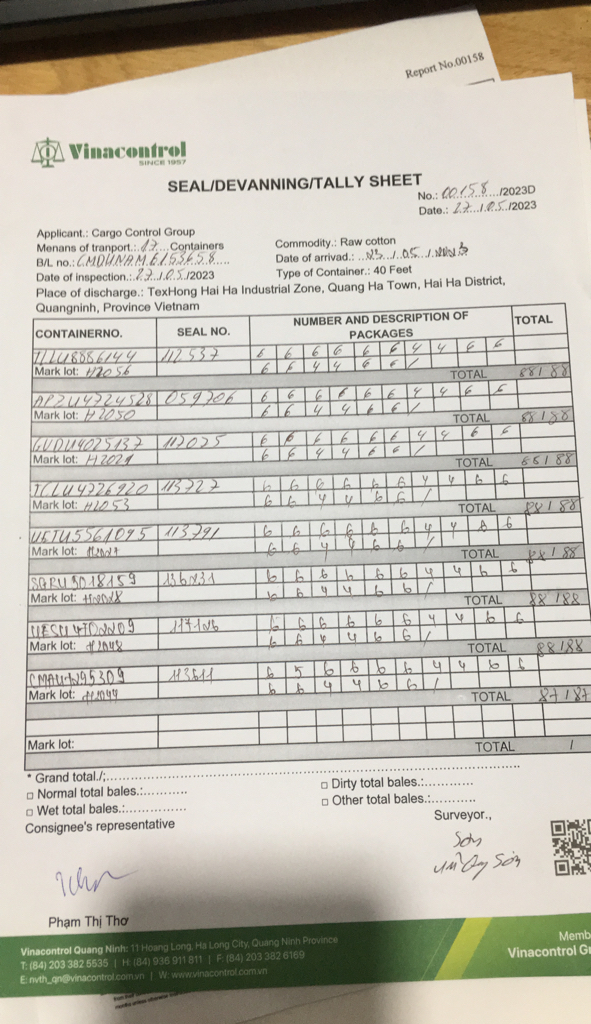 Report No.00158
Vinacontrol
SINCE 1957
SEAL/DEVANNING/TALLY SHEET
No.: 00158.../2023D
Date.: 27../05/2023
Applicant.: Cargo Control Group
Menans of tranport.: 17 Containers
Commodity.: Raw cotton
B/L no.:
Date of arrivad.:
Date of inspection.: 27/05/2023
Type of Container.: 40 Feet
Place of discharge.: TexHong Hai Ha Industrial Zone, Quang Ha Town, Hai Ha District,
Quangninh, Province Vietnam
CONTAINERNO. SEAL NO. NUMBER AND DESCRIPTION OF PACKAGES TOTAL
112537 6 6 6 6 6 6 4 4 6 6
Mark lot: H2056 6 6 4 4 6 6 /
TOTAL 88/88
059706 6 6 6 6 6 6 4 4 6 6
Mark lot: H2050 6 6 4 4 6 6 /
TOTAL 88/88
6 6 6 6 6 6 4 4 6 6
Mark lot: 6 6 4 4 6 6 /
TOTAL 88/88
TCLU4726920 113727 6 6 6 6 6 6 4 4 6 6
Mark lot: H2053 6 6 4 4 6 6 /
TOTAL 88/88
UETU5561095 113791 6 6 6 6 6 6 4 4 6
Mark lot: 6 6 4 4 6 6 /
TOTAL 88/88
6 6 6 6 6 6 4 4 6 6
Mark lot: 6 6 4 4 6 6 /
TOTAL 88/88
6 6 6 6 6 6 4 4 6 6
Mark lot: H2048 6 6 4 4 6 6 /
TOTAL 88/88
113611 6 5 6 6 6 6 4 4 6 6
Mark lot: H2044 6 6 4 4 6 6 /
TOTAL 87/87
Mark lot:
TOTAL /
* Grand total./;
□ Normal total bales.:
□ Dirty total bales.:
□ Wet total bales.:
□ Other total bales.:
Consignee's representative
Surveyor.,
Phạm Thị Thơ
Vinacontrol Quang Ninh: 11 Hoang Long, Ha Long City, Quang Ninh Province
T: (84) 203 382 5535 | H: (84) 936 911 811 | F: (84) 203 382 6169
E: nvth_qn@vinacontrol.com.vn | W: www.vinacontrol.com.vn
Memb
Vinacontrol Gr